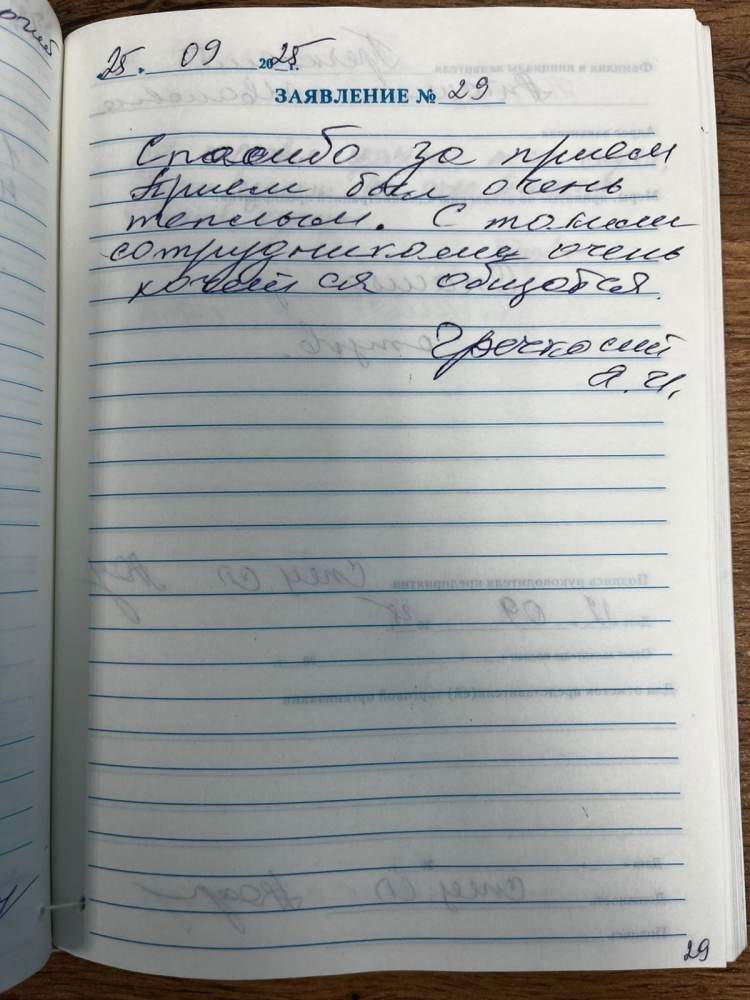 25. 09 2025 г.
ЗАЯВЛЕНИЕ № 29
Спасибо за прием
Прием был очень
теплым. С такими
сотрудниками очень
хочется общатся.
Я.И.
29